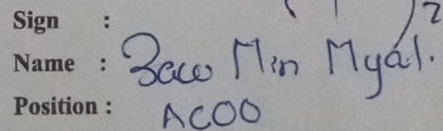 Sign :
Name : Zaw Min Myat.
Position : ACOO